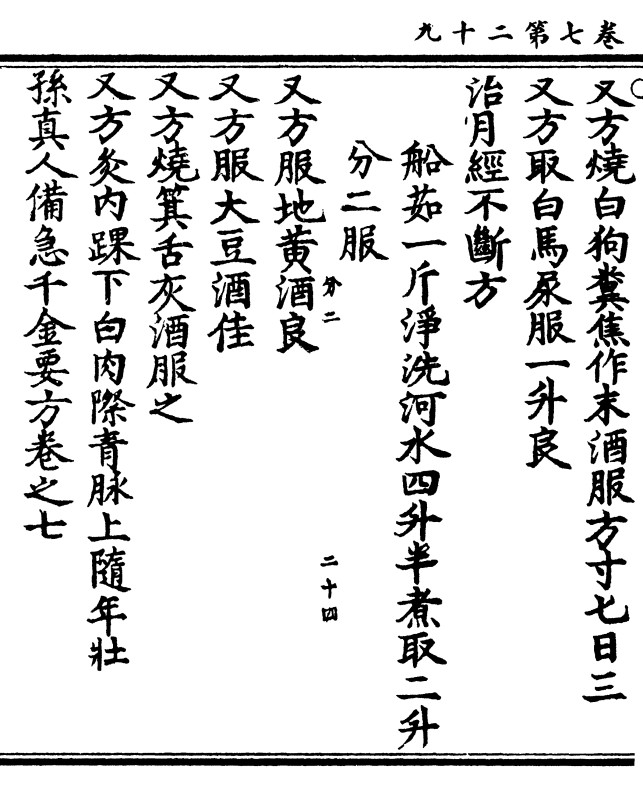 卷七第二十九
又方燒白狗糞焦作末酒服方寸七日三
又方取白馬尿服一升良
治月經不斷方
船茹一斤淨洗河水四升半煮取二升
分二服
分二
二十四
又方服地黄酒良
又方服大豆酒佳
又方燒箕舌灰酒服之
又方灸内踝下白肉際青脉上隨年壯
孫真人備急千金要方卷之七